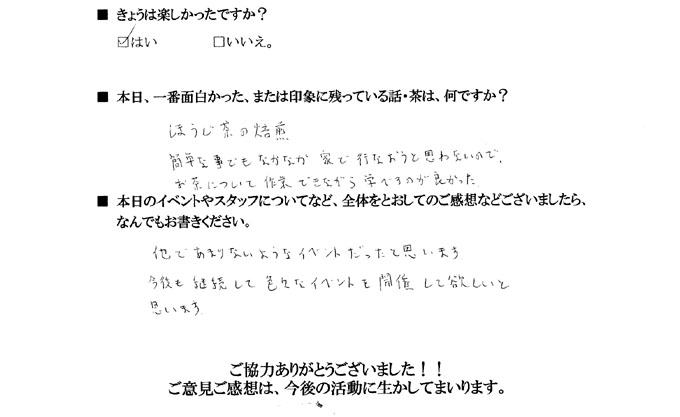 ■ きょうは楽しかったですか？
☑はい　□いいえ。
■ 本日、一番面白かった、または印象に残っている話・茶は、何ですか？
ほうじ茶の焙煎
簡単な事でもなかなか家で行なおうと思わないので、
お茶について作業できながら学べるのが良かった
■ 本日のイベントやスタッフについてなど、全体をとおしてのご感想などございましたら、
なんでもお書きください。
他であまりないようなイベントだったと思います
今後も継続して色々なイベントを開催して欲しいと
思います
ご協力ありがとうございました！！
ご意見ご感想は、今後の活動に生かしてまいります。